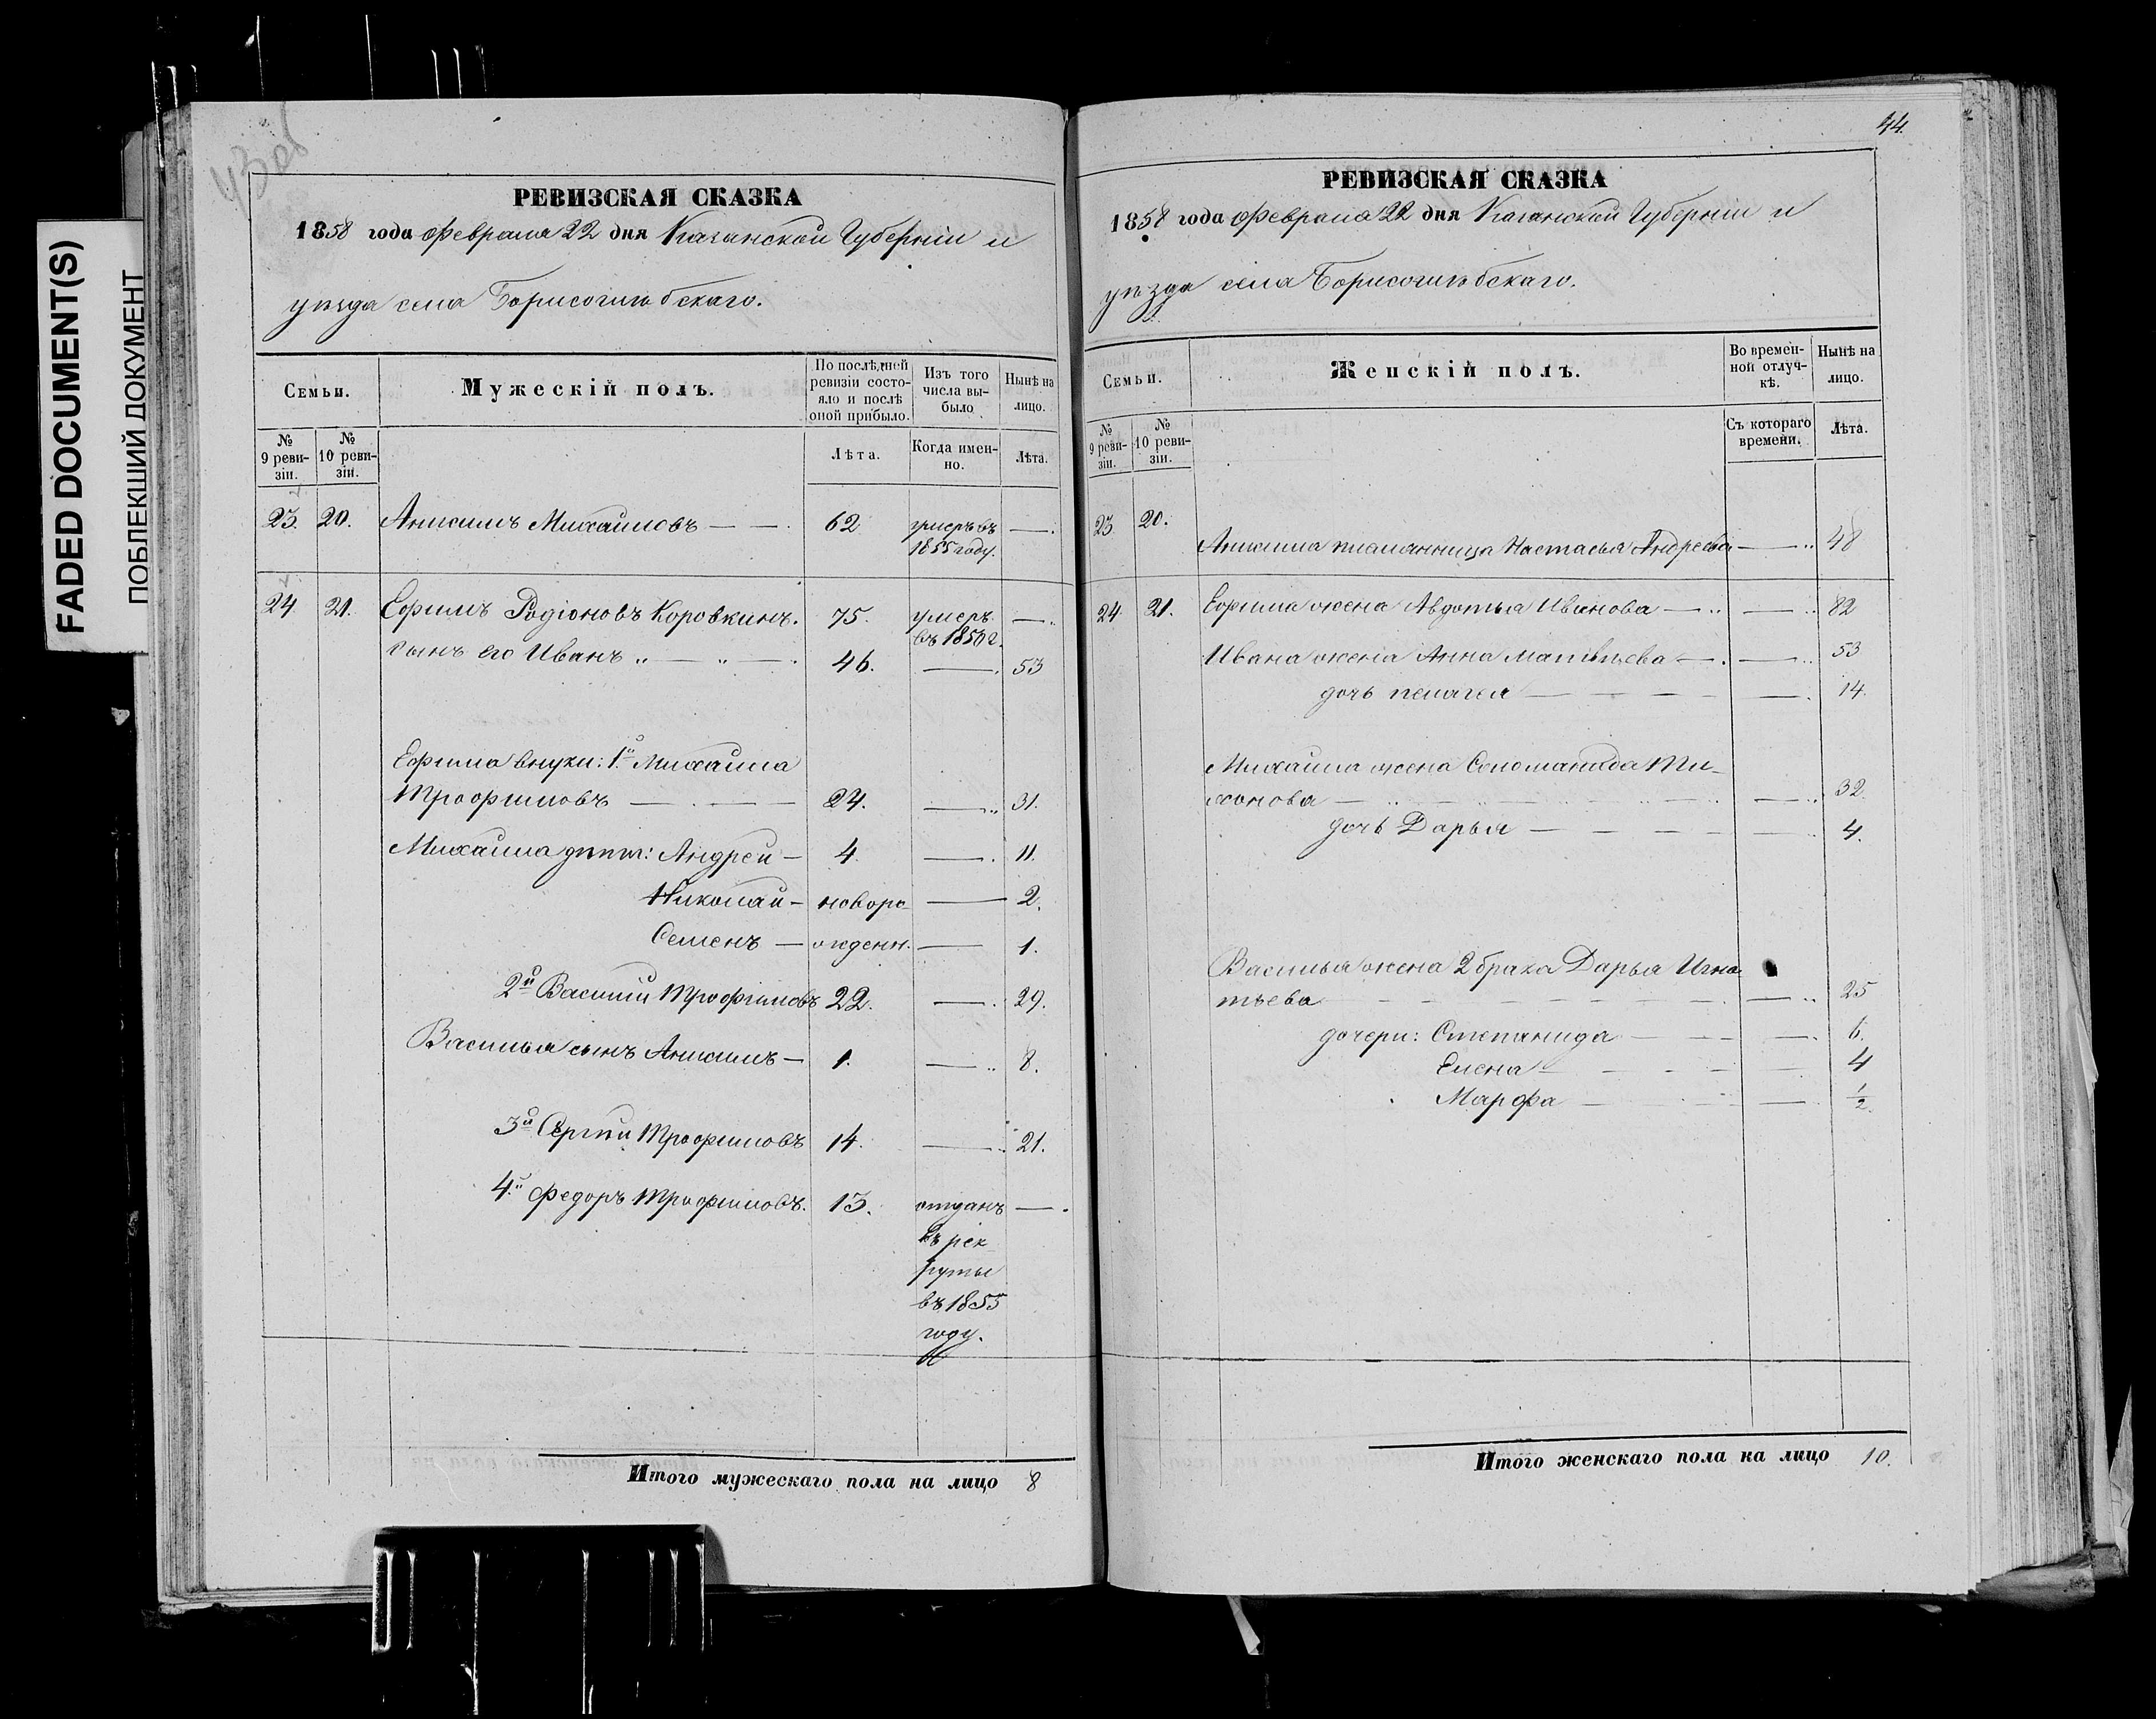 FADED DOCUMENT(S)
ПОБЛЕКШИЙ ДОКУМЕНТ
РЕВИЗСКАЯ СКАЗКА
1858 года Февраля 22 дня Казанской Губерніи и
уѣзда села Борисоглѣбскаго.
Семьи.
Мужескій полъ.
По послѣдней ревизіи состояло и послѣ оной прибыло.
Изъ того числа выбыло
Нынѣ на лицо.
№ 9 ревизіи.
№ 10 ревизіи.
Лѣта.
Когда именно.
Лѣта.
23. 20. Анисимъ Михайловъ — — . 62 умеръ въ —.
1855 году.
24 21. Ефимъ Родіоновъ Коровкинъ. 75. умеръ —.
въ 1850 г.
сынъ его Иванъ „ — „ — . 46. — . 53
Ефима внуки: 1й Михаила
Трофимовъ — . — 24. — „ 31.
Михаила дѣти: Андрей — 4. — . 11.
Николай — новоро — 2.
Семенъ — жденн. — 1.
2й Василій Трофимовъ 22. — . 29.
Василья сынъ Анисимъ — 1. — „ 8.
3й Сергѣй Трофимовъ 14. — „ 21.
4й Федоръ Трофимовъ. 13. отданъ —.
въ рек
руты
въ 1855
году.
Итого мужескаго пола на лицо 8
44.
РЕВИЗСКАЯ СКАЗКА
1858 года Февраля 22 дня Казанской Губерніи и
уѣзда села Борисоглѣбскаго.
Семьи.
Женскій полъ.
Во временной отлучкѣ.
Нынѣ на лицо.
№ 9 ревизіи.
№ 10 ревизіи.
Съ котораго времени.
Лѣта.
23 20.
Анисима племянница Настасья Андреева — „ 48
24. 21. Ефима жена Авдотья Иванова — „ — „ 82
Ивана жена Анна Матвѣева — . — „ 53
дочь Пелагея — — — — . 14.
Михаила жена Соломанида Ти-
хонова — „ — „ — — „ — „ 32.
дочь Дарья — — — — — „ 4.
Василья жена 2 брака Дарья Игна
тьева — — — — — — — . — „ 25
дочери: Степанида — — — — . 6.
Елена — — — — — 4
Марфа — — — — 1/2.
Итого женскаго пола на лицо 10.